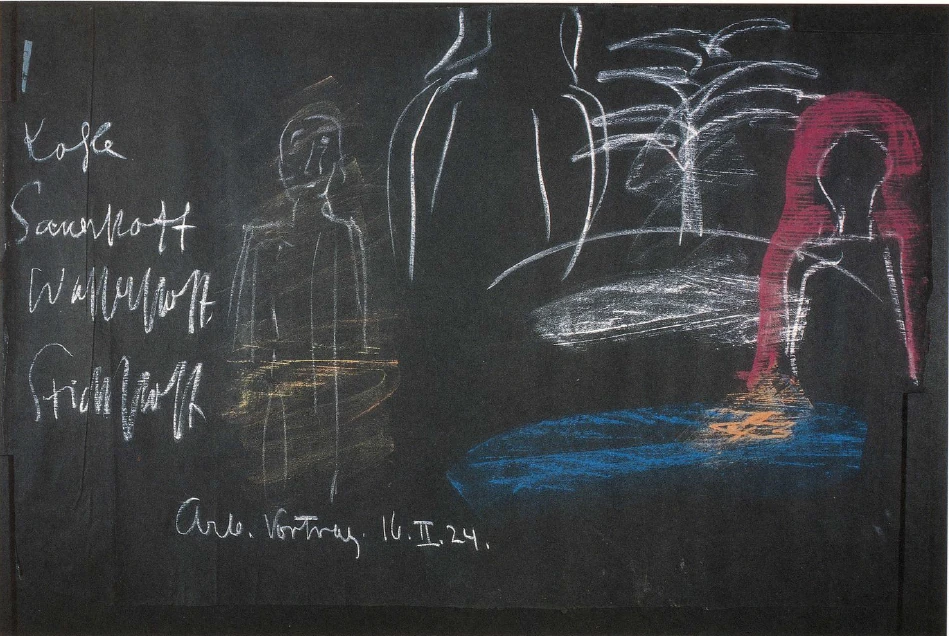 Kohle
Sauerstoff
Wasserstoff
Stickstoff
Arb. Vortrag. 16.II.24.